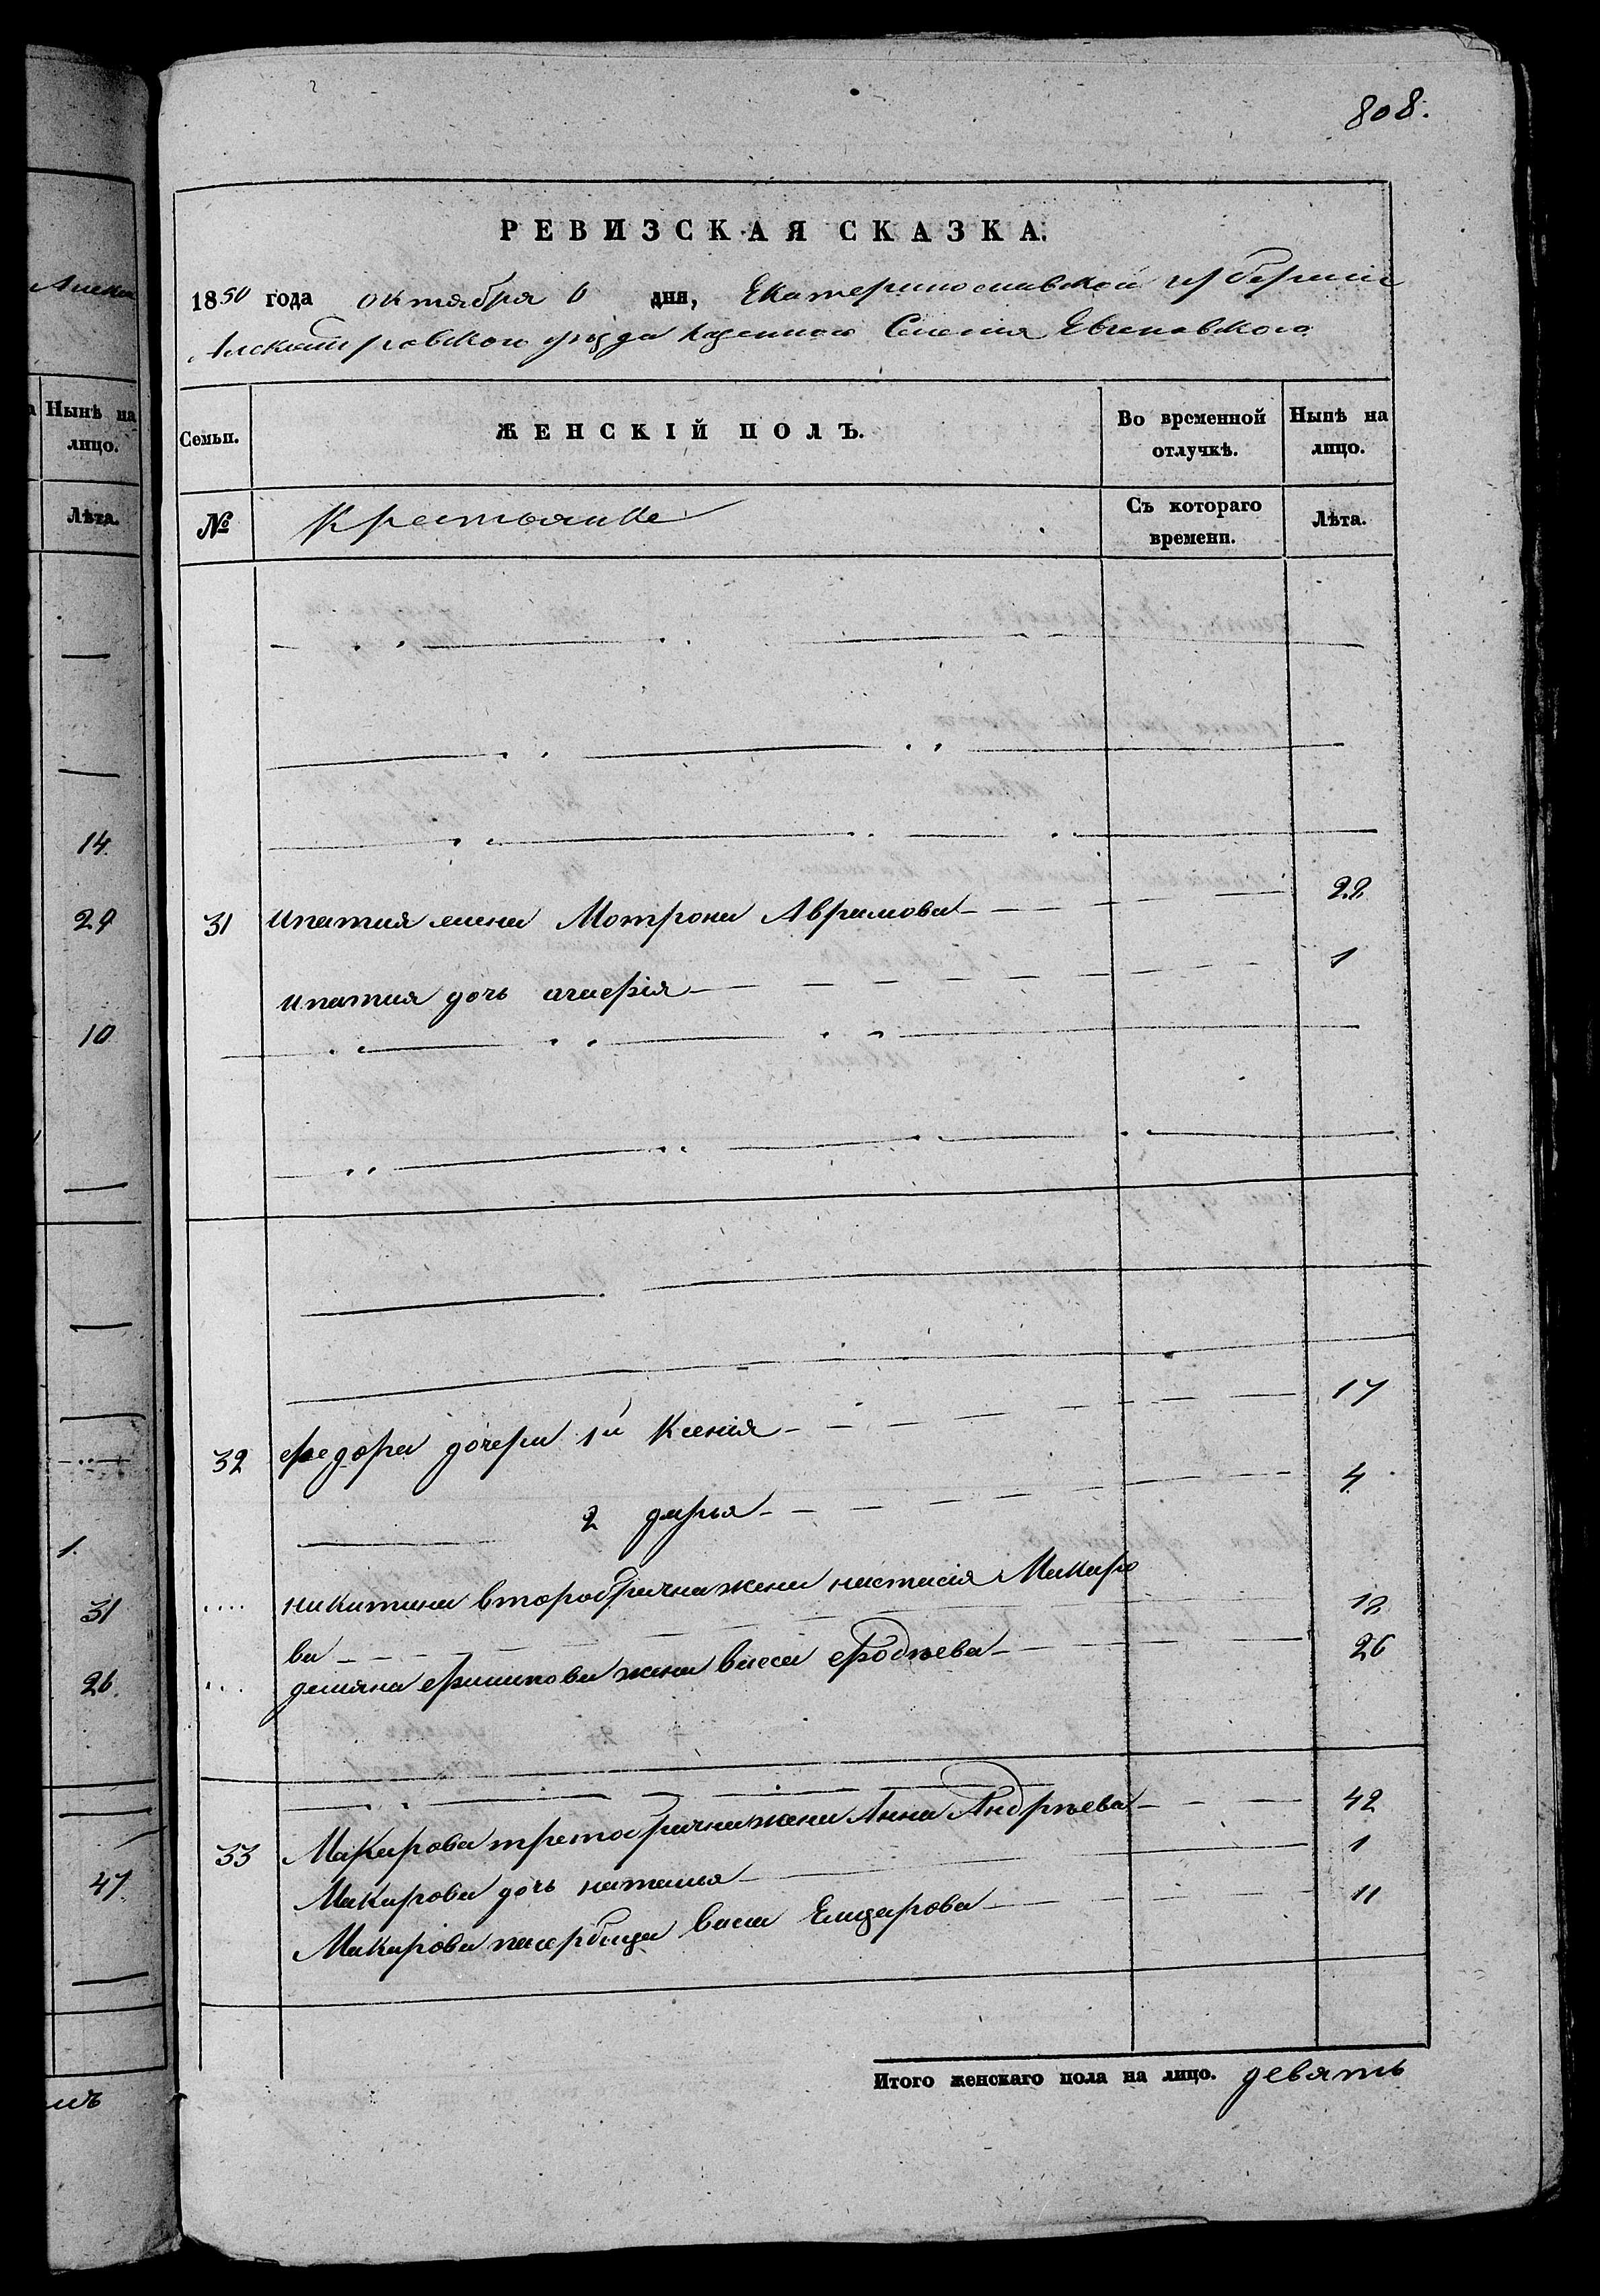 808.
РЕВИЗСКАЯ СКАЗКА.
1850 года октября 6 дня, Екатеринославской губерніи
уѣзда казенного Селенія
Семьи.
ЖЕНСКІЙ ПОЛЪ.
Во временной отлучкѣ.
Нынѣ на лицо.
№
Крестьянке
Съ котораго времени.
Лѣта.
31 ипатия жена Мотрона Аврамова 22
ипатия дочь 1
32 федора дочери 1я Ксенія 17
2 дарья 4
никитина второбрачна жена настасія Макаро
ва 18
демяна жена васса 26
33 Макарова третобрачна жена Анна Андрѣева 42
Макарова дочь наталья 1
Макарова пасербица васа Елизарова 11
Итого женскаго пола на лицо. девять
Нынѣ на лицо.
Лѣта.
14
29
10
1.
31
26.
47